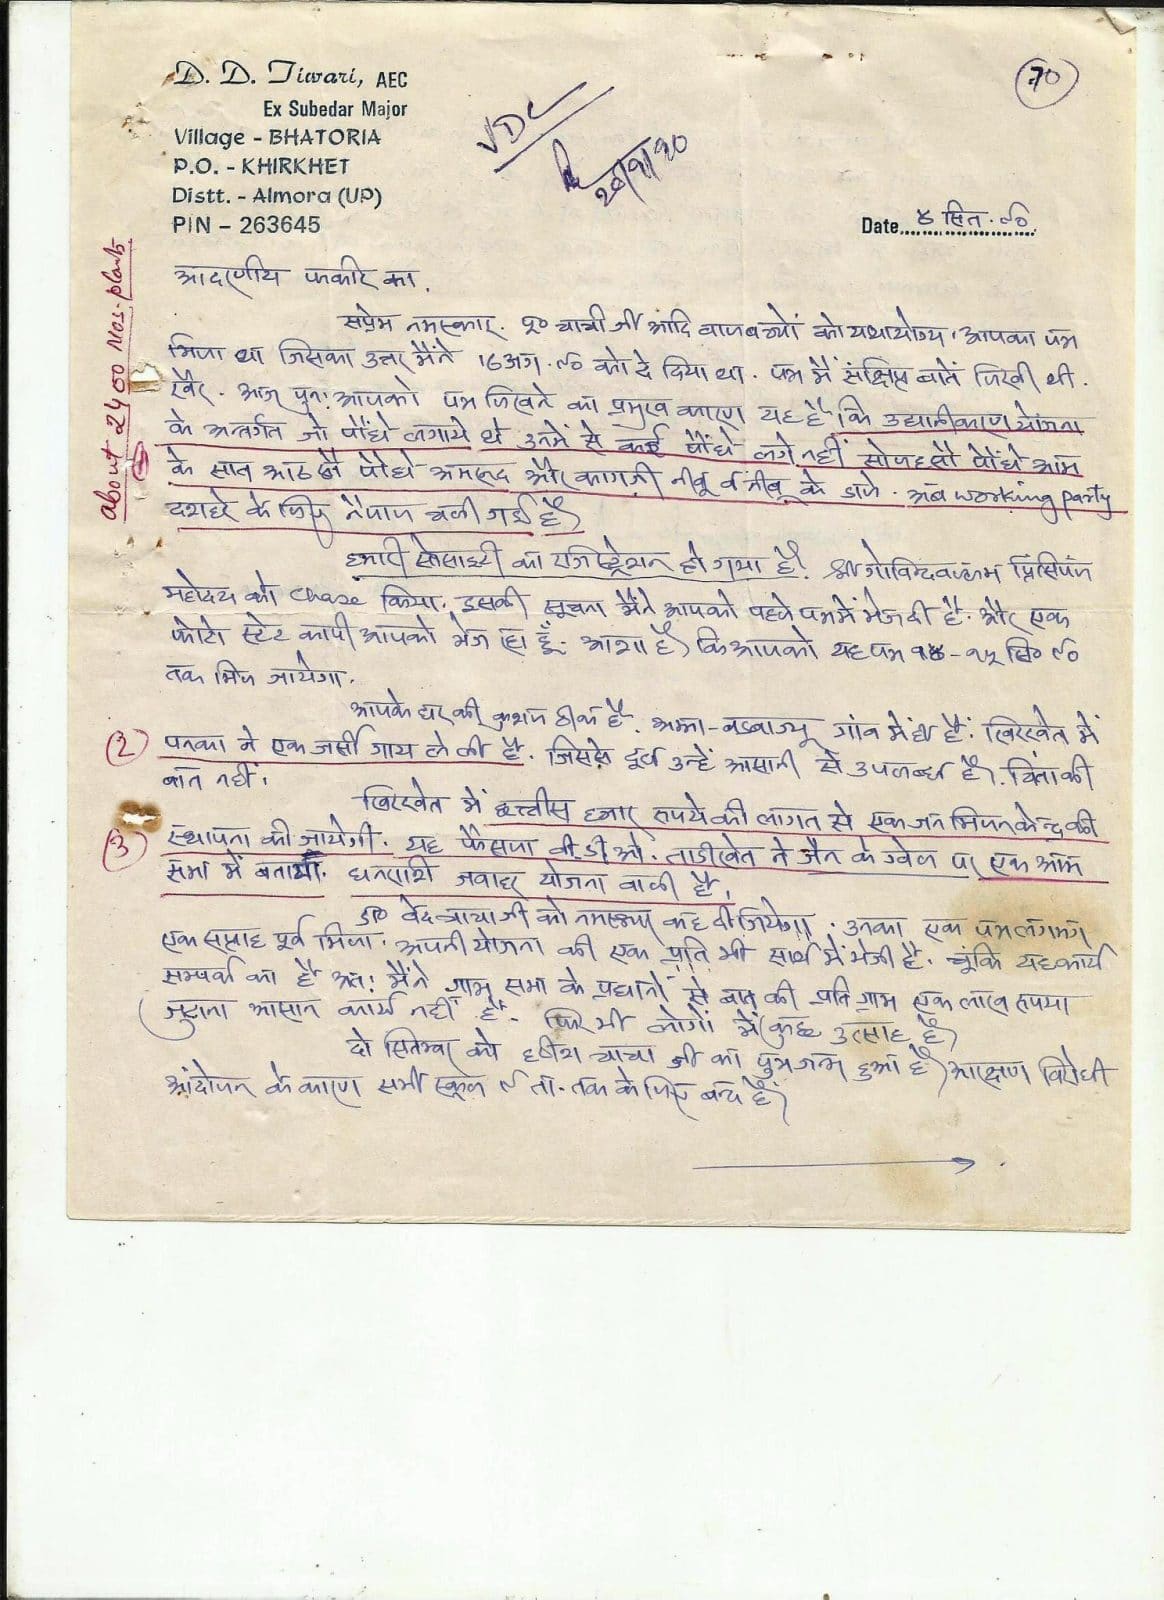 D. D. Tiwari, AEC
Ex Subedar Major
Village - BHATORIA
P.O. - KHIRKHET
Distt. - Almora (UP)
PIN - 263645
70
VDC
20/9/90
Date ४ सित. ९०
about 2400 Nos. plants
आदरणीय फकीर का.
सप्रेम नमस्कार. पू० चाची जी आदि बालबच्चों को यथायोग्य. आपका पत्र
मिला था जिसका उत्तर मैंने 16 अग. ९० को दे दिया था. पत्र में संक्षिप्त बातें लिखी थी.
खैर. आज पुनः आपको पत्र लिखने का प्रमुख कारण यह है कि उद्यानीकरण योजना
के अन्तर्गत जो पौधे लगाये थे उनमें से कई पौधे लगे नहीं सोलहसौ पौधे आम
के सात आठ सौ पौधे अमरूद और कागजी नीबू व नीबू के डाले. अब working party
दशहरे के लिए नैपाल चली गई है।
हमारी सोसाइटी का रजिस्ट्रेशन हो गया है. श्री गोविन्दबल्लभ प्रिंसिपल
महोदय को chase किया. इसकी सूचना मैंने आपको पहले पत्र में भेज दी है. और एक
फोटो स्टेट कापी आपको भेज रहा हूँ. आशा है कि आपको यह पत्र १४-१५ सि० ९०
तक मिल जायेगा.
आपके घर की कुशल ठीक है. अम्मा-बडबाज्यू गांव में ही हैं. खिरखेत में
(2) पनका ने एक जर्सी गाय ले ली है. जिससे दूध उन्हें आसानी से उपलब्ध है. चिंता की
बात नहीं.
खिरखेत में छत्तीस हजार रुपये की लागत से एक जन मिलन केन्द्र की
(3) स्थापना की जायेगी. यह फैसला बी.डी.ओ. ताडीखेत ने जैन के खेल पर एक आम
सभा में बताया. धनराशि जवाहर योजना वाली है.
डा० वेद चाचा जी को नमस्कार कह दीजियेगा. उनका एक पत्र लगभग
एक सप्ताह पूर्व मिला. अपनी योजना की एक प्रति भी साथ में भेजी है. चूंकि यह कार्य
सम्पर्क का है अतः मैंने ग्राम सभा के प्रधानों से बात की प्रति ग्राम एक लाख रुपया
जुटाना आसान कार्य नहीं है. फिर भी लोगों में कुछ उत्साह है।
दो सितम्बर को हरीश चाचा जी का पुत्र जन्म हुआ है। आरक्षण विरोधी
आंदोलन के कारण सभी स्कूल ९ ता. तक के लिए बन्द हैं।